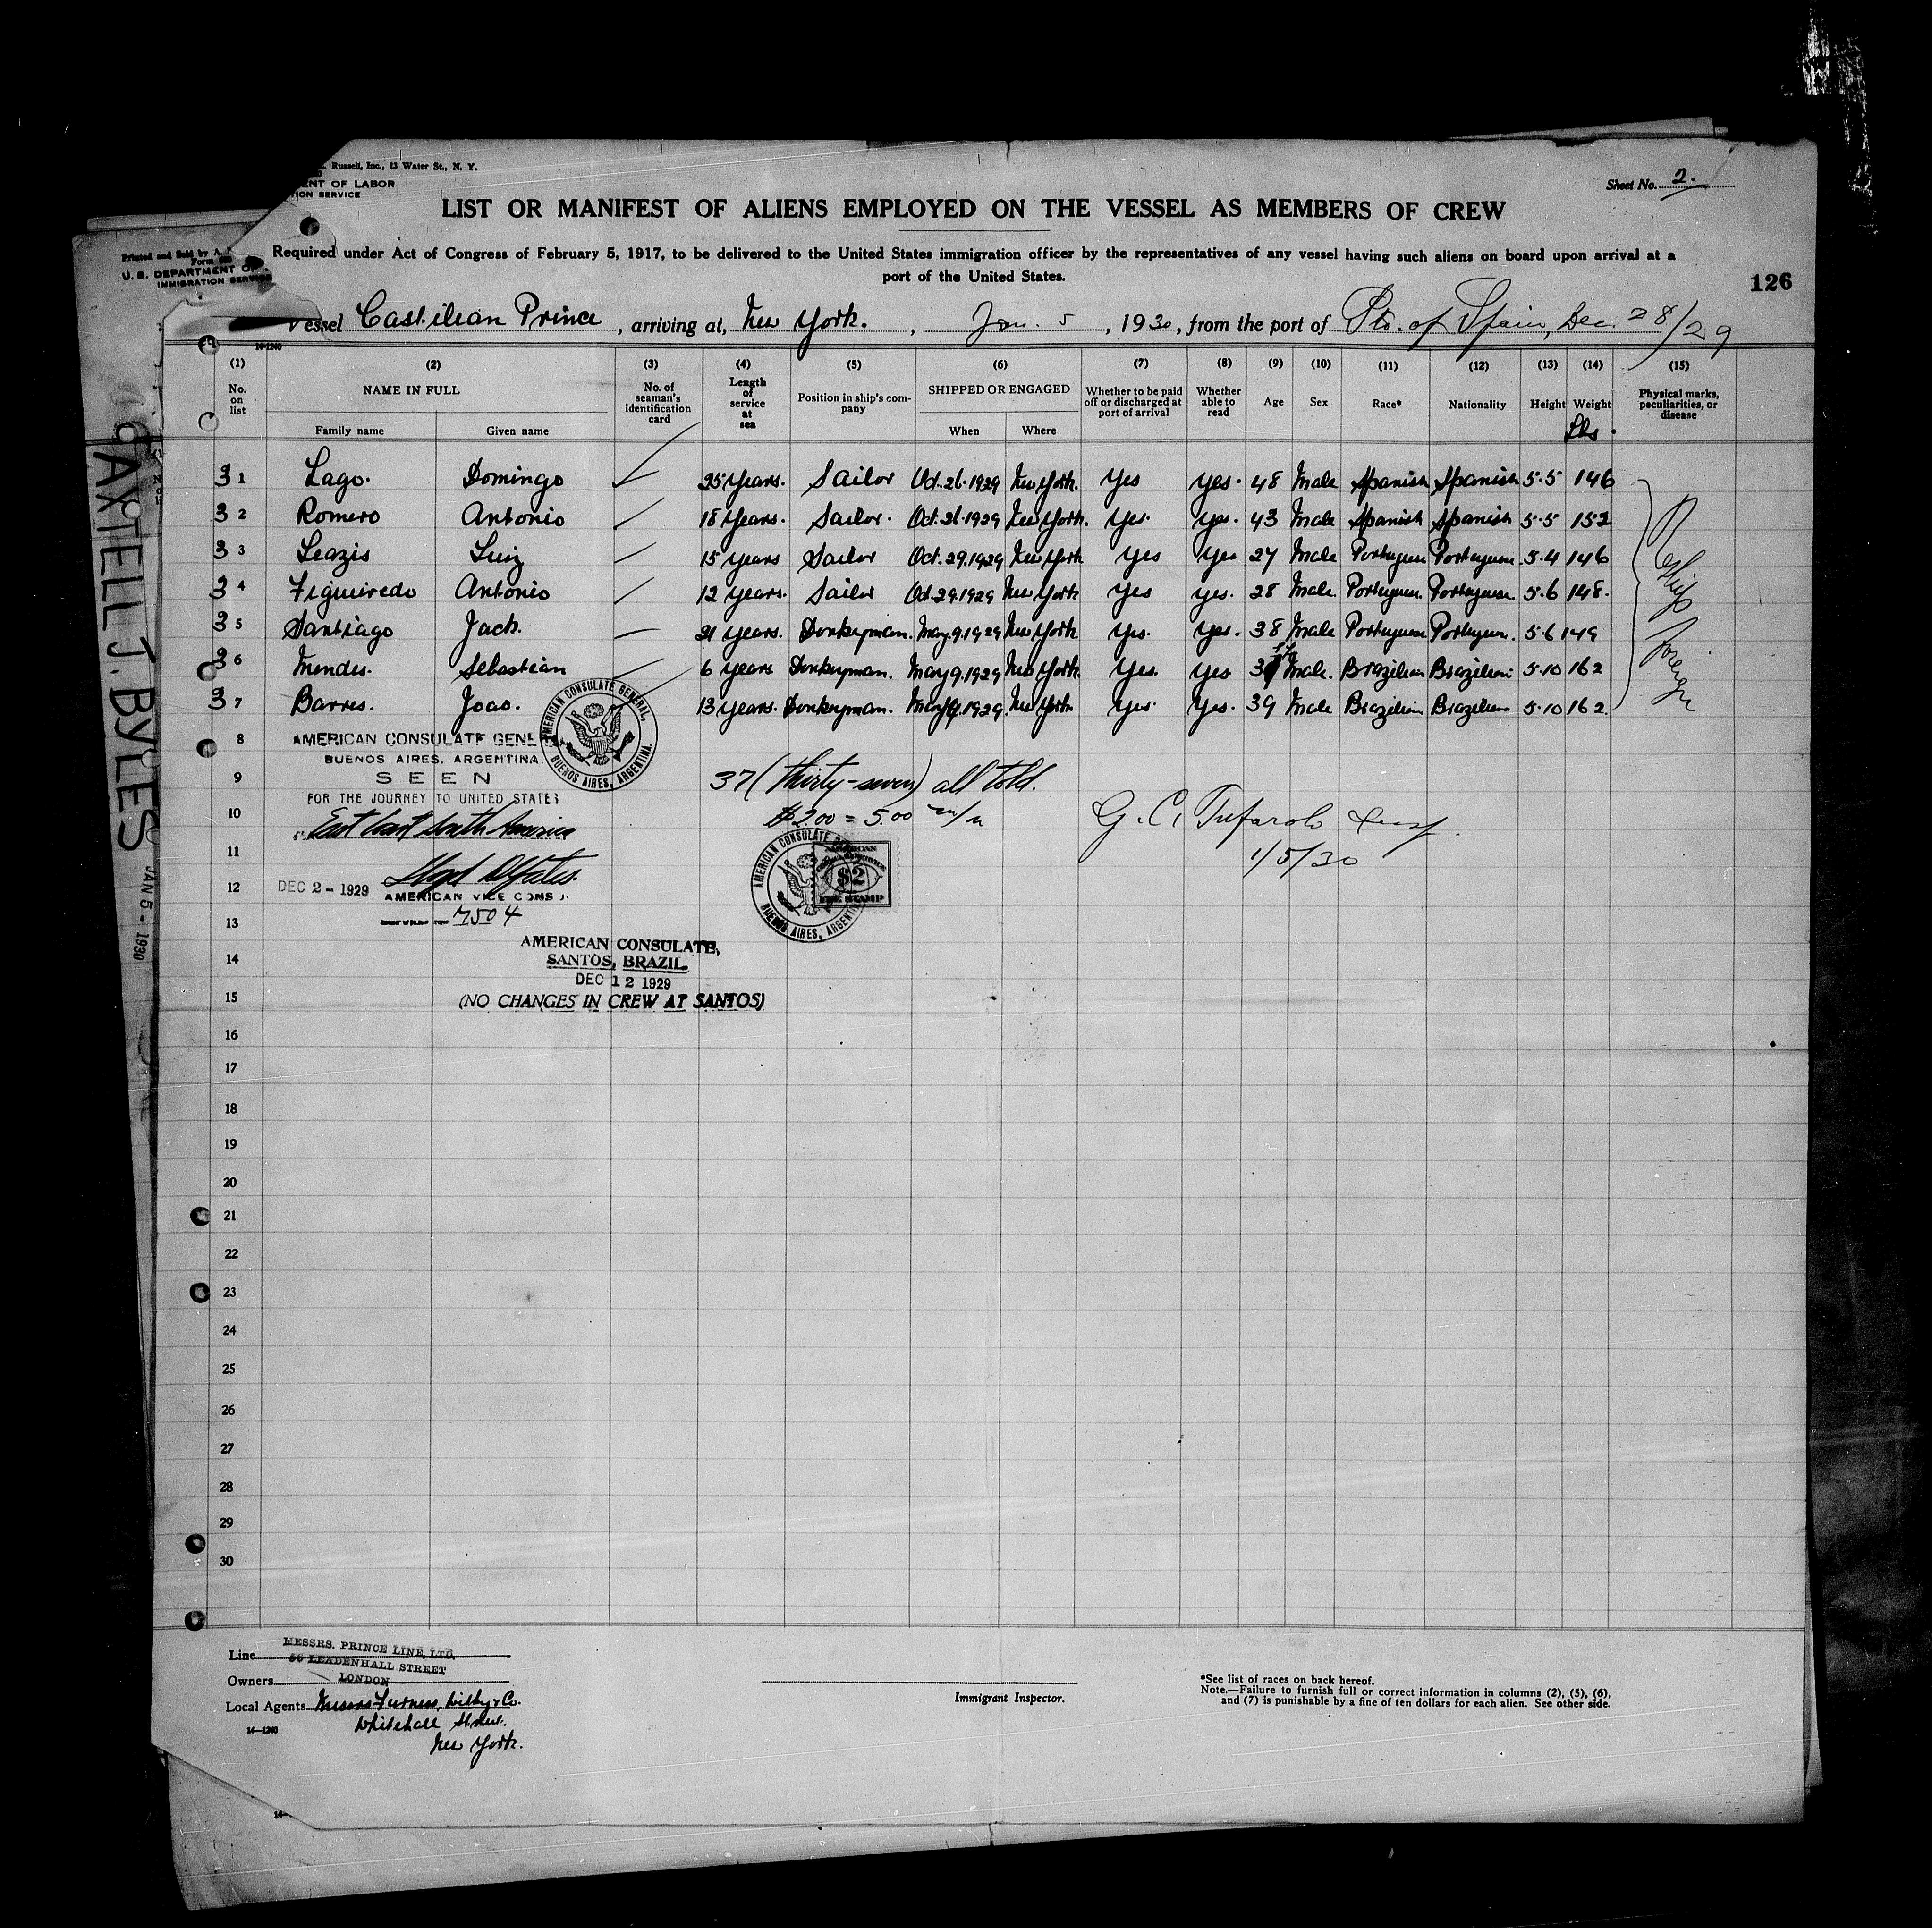 Russell, Inc., 13 Water St., N. Y.
ENT OF LABOR
TION SERVICE
Sheet No. 2.
LIST OR MANIFEST OF ALIENS EMPLOYED ON THE VESSEL AS MEMBERS OF CREW
Required under Act of Congress of February 5, 1917, to be delivered to the United States immigration officer by the representatives of any vessel having such aliens on board upon arrival at a
port of the United States.
126
Printed and Sold by A.
Form
U. S. DEPARTMENT OF
IMMIGRATION SERVICE
Vessel Castilian Prince, arriving at, New York., Jan. 5, 1930, from the port of Pto. of Spain, Dec. 28/29
14-1240
(1) (2) (3) (4) (5) (6) (7) (8) (9) (10) (11) (12) (13) (14) (15)
No. on list NAME IN FULL Family name Given name No. of seaman's identification card Length of service at sea Position in ship's company SHIPPED OR ENGAGED When Where Whether to be paid off or discharged at port of arrival Whether able to read Age Sex Race* Nationality Height Weight Lbs. Physical marks, peculiarities, or disease
31 Lago. Domingo 25 Years. Sailor Oct. 26. 1929 New York. Yes Yes. 48 Male Spanish Spanish 5·5 146
32 Romero Antonio 18 Years. Sailor. Oct. 26. 1929 New York. Yes. Yes. 43 Male Spanish Spanish 5·5 152
33 Leazis Luiz 15 Years Sailor Oct. 29. 1929 New York Yes Yes 27 Male Portuguese Portuguese. 5·4 146
34 Figueiredo Antonio 12 Years. Sailor Oct. 29. 1929 New York Yes Yes. 28 Male. Portuguese. Portuguese. 5·6 148.
35 Santiago Jack. 21 Years. Donkeyman. May. 9. 1929 New York Yes. Yes. 38 Male Portuguese Portuguese. 5·6 149
36 Mendes. Sebastian 6 Years Donkeyman. May 9. 1929 New York. Yes. Yes Male. Brazilian Brazilian 5·10 162
37 Barres. Joao. 13 Years. Donkeyman. May 9. 1929. New York Yes. Yes. 39 Male Brazilian Brazilian 5·10 162.
Reship foreign
8 AMERICAN CONSULATE GENE
BUENOS AIRES, ARGENTINA.
AMERICAN CONSULATE GENERAL, BUENOS AIRES, ARGENTINA.
9 SEEN
37 (thirty-seven) all told.
FOR THE JOURNEY TO UNITED STATES
10 East Coast South America
$2.00 = 5.00 m/n
G. C. Tufarolo Insp.
1/5/30
11
AMERICAN CONSULATE GENERAL BUENOS AIRES, ARGENTINA
AMERICAN
$2
FEE STAMP
12 DEC 2 - 1929
AMERICAN VICE CONSUL
7504
13
AMERICAN CONSULATE,
14 SANTOS, BRAZIL.
DEC 12 1929
15 (NO CHANGES IN CREW AT SANTOS)
16
17
18
19
20
21
22
23
24
25
26
27
28
29
30
AXTELL J. BYLES JAN 5 - 1930
Line MESSRS. PRINCE LINE, LTD.
56 LEADENHALL STREET
Owners LONDON
Local Agents Messrs Furness, Withy & Co.
Whitehall Street.
New York.
14-1240
Immigrant Inspector.
*See list of races on back hereof.
Note.—Failure to furnish full or correct information in columns (2), (5), (6),
and (7) is punishable by a fine of ten dollars for each alien. See other side.
14-